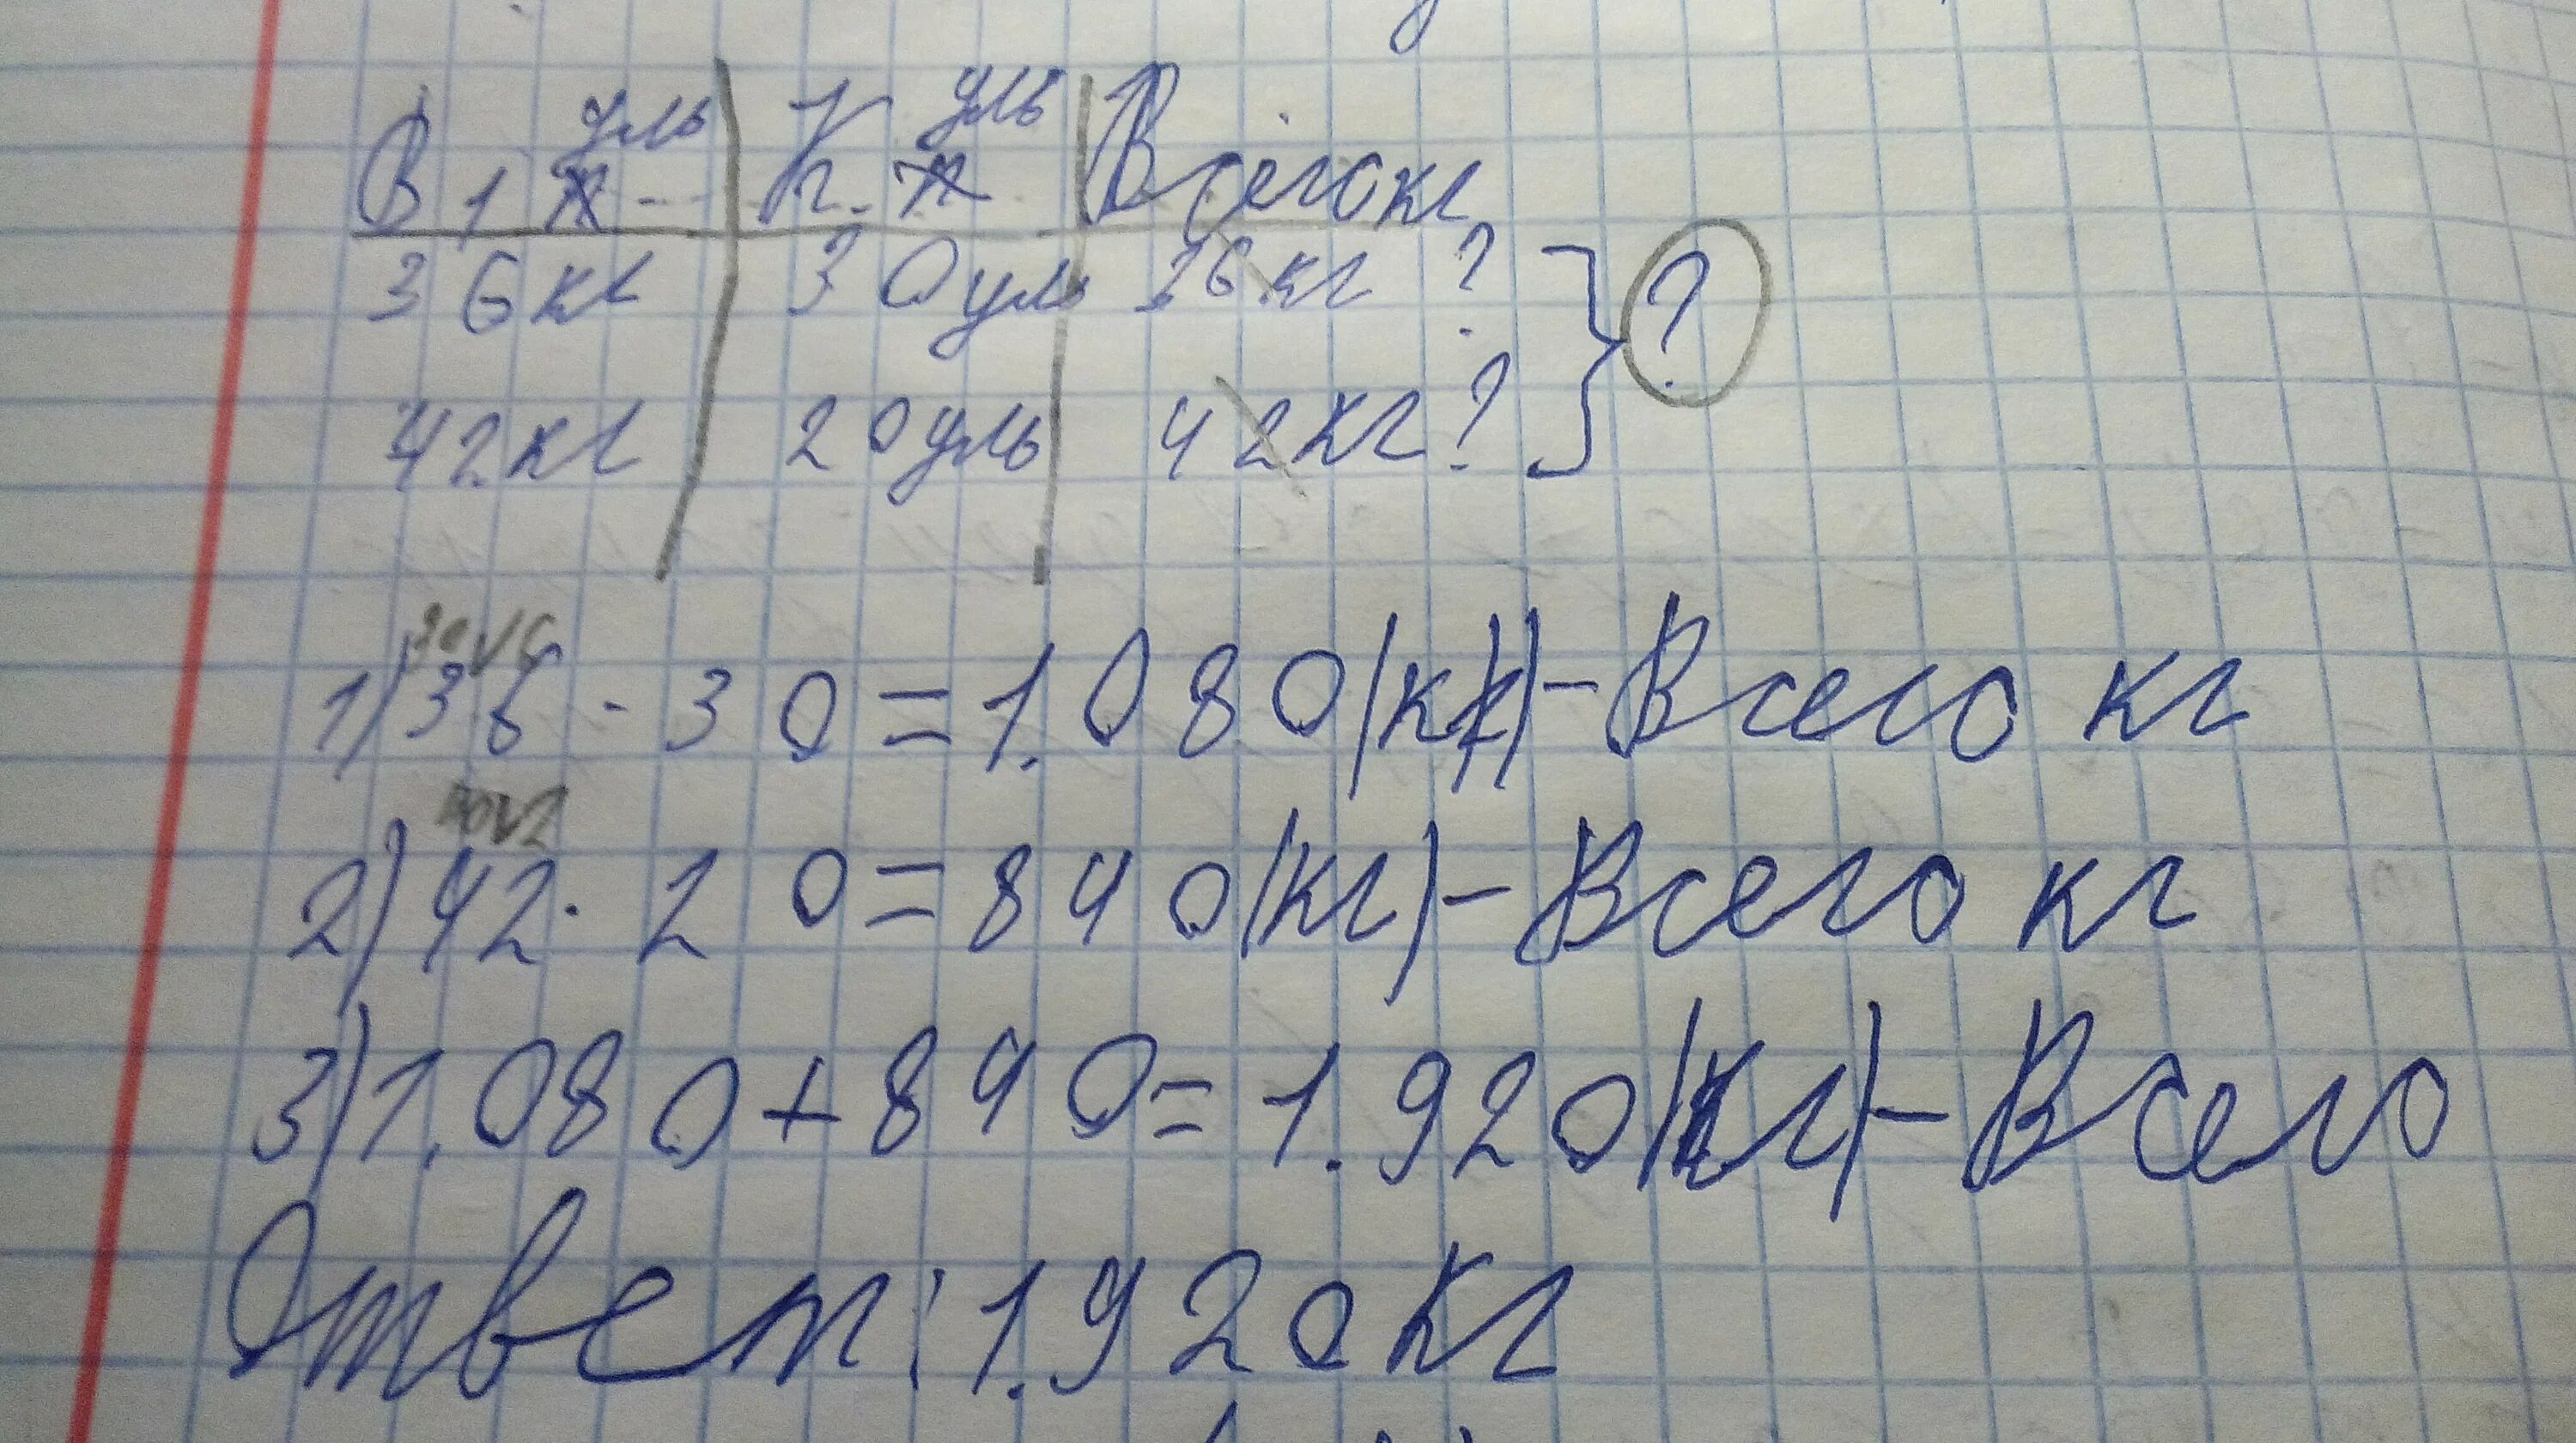 В 1 уль К. уль Всего кг
36 кг 30 уль 36 кг ?
?
42 кг 20 уль 42 кг ?
30 6
1) 36 · 30 = 1.080 (кг) - Всего кг
40 2
2) 42 · 20 = 840 (кг) - Всего кг
3) 1.080 + 840 = 1.920 (кг) - Всего
Ответ: 1.920 кг